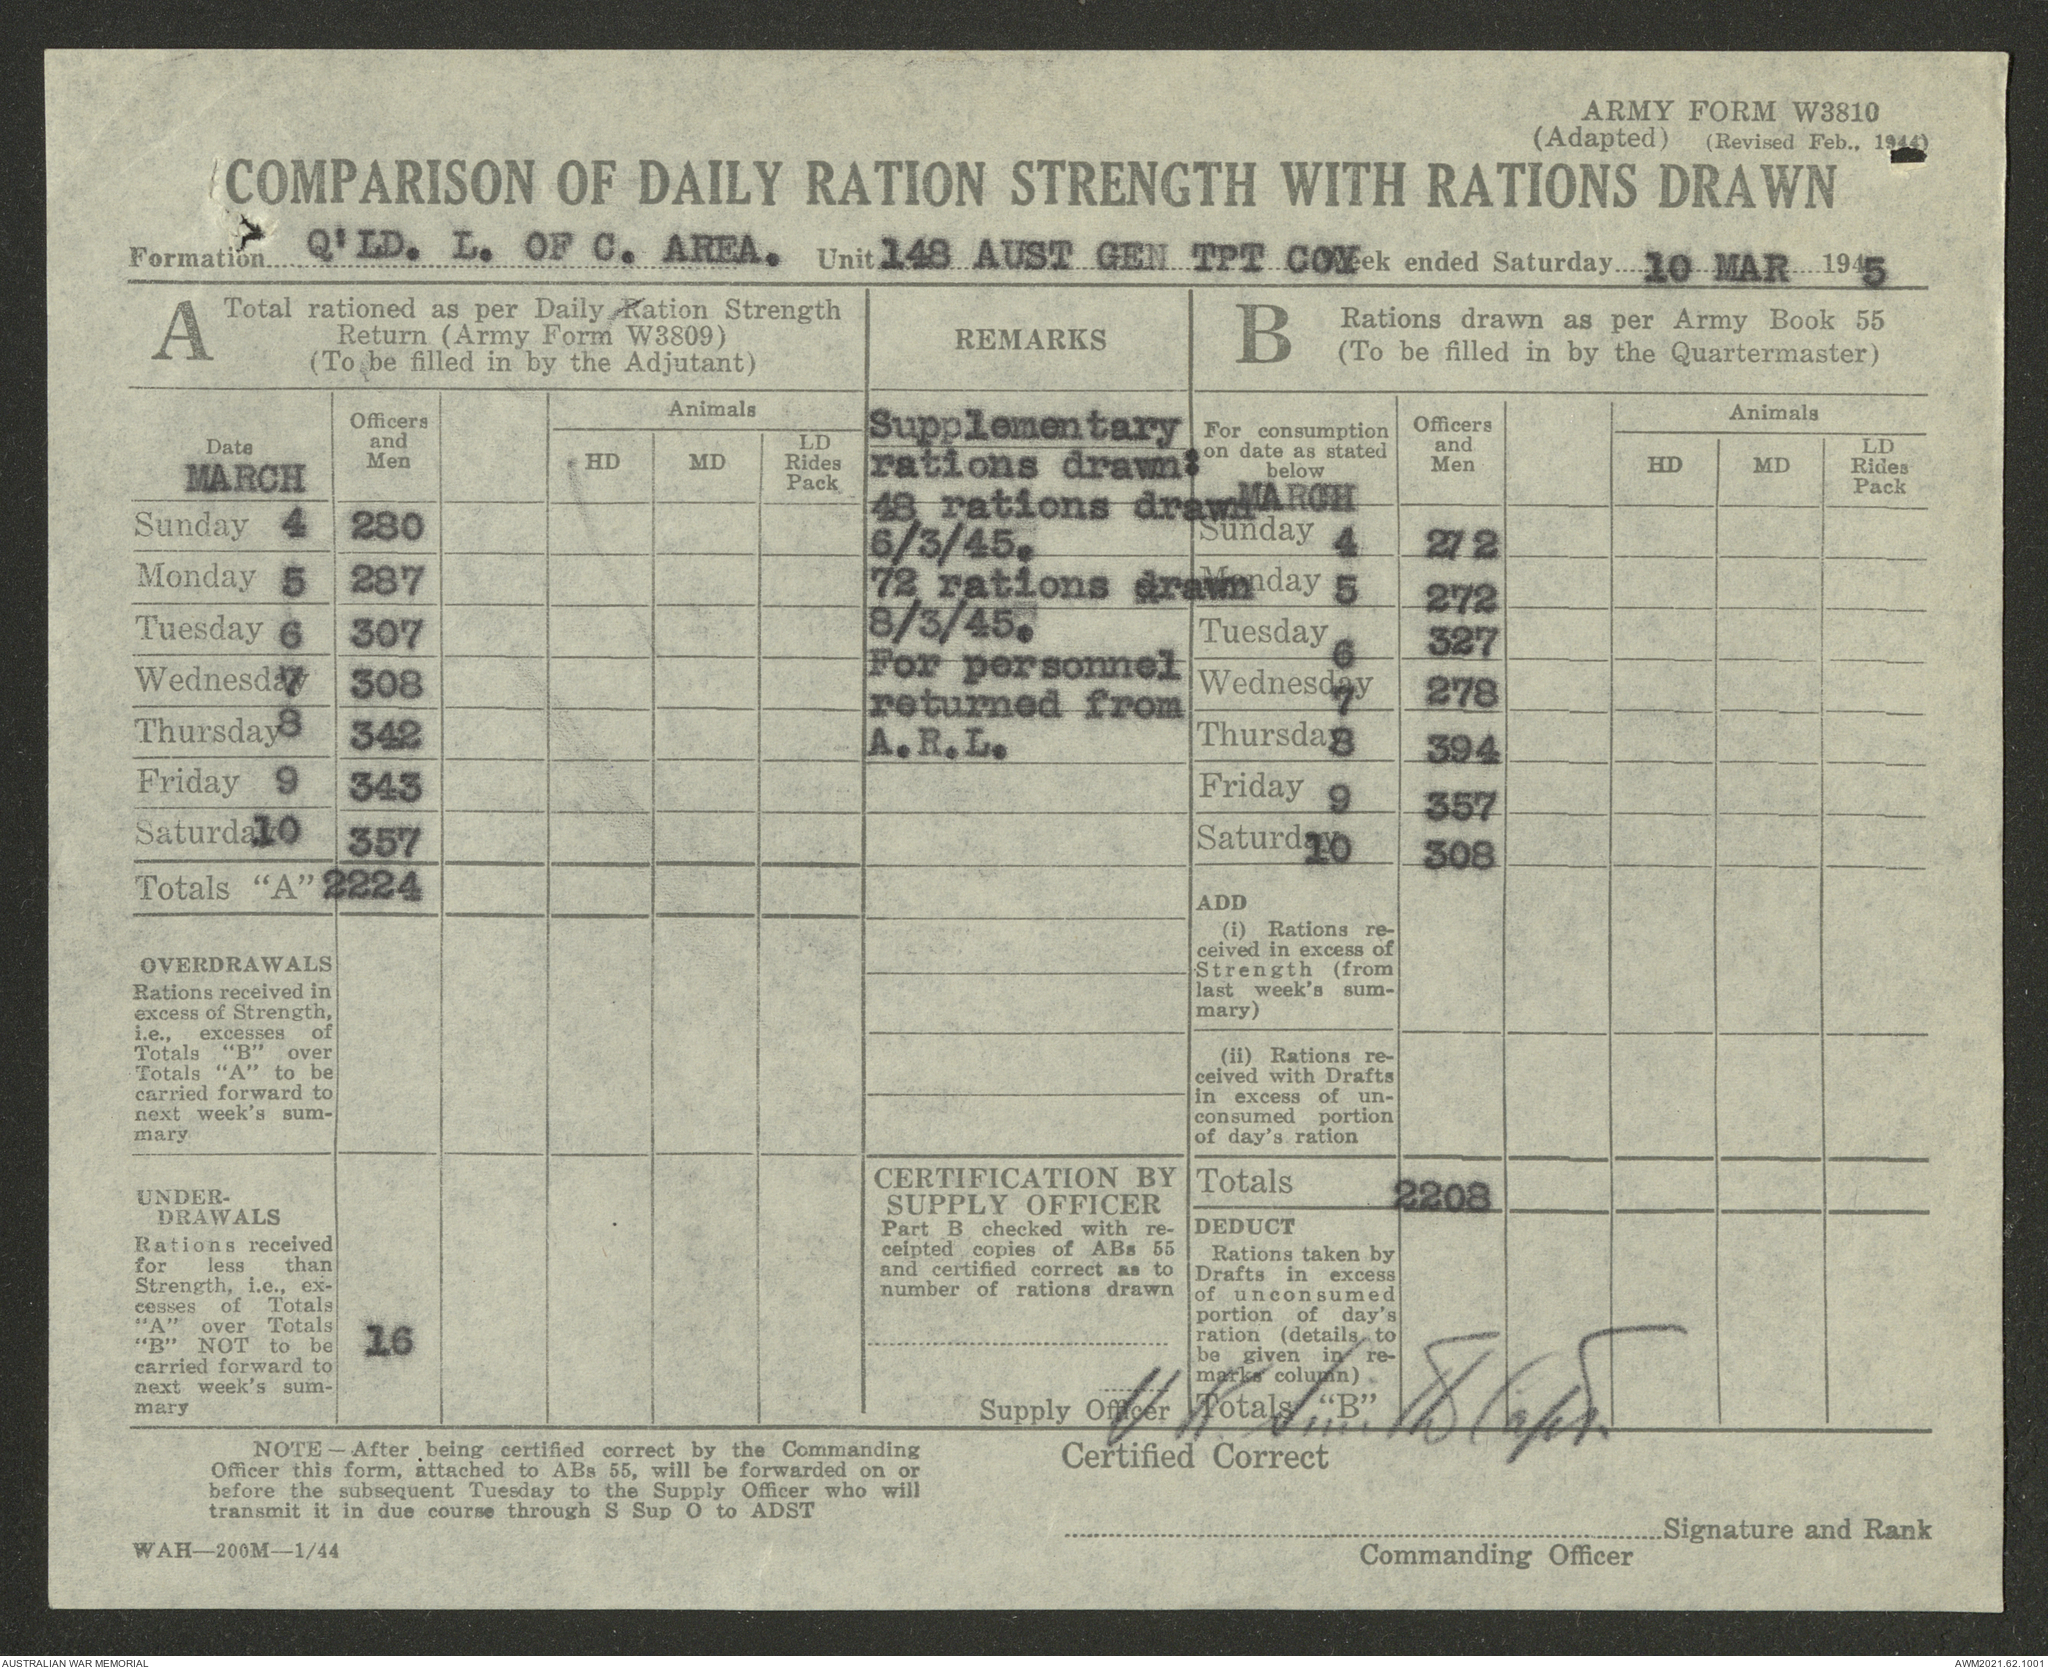 ARMY FORM W3810
(Adapted) (Revised Feb., 1944)
COMPARISON OF DAILY RATION STRENGTH WITH RATIONS DRAWN
Formation Q'LD. L. OF C. AREA. Unit 148 AUST GEN TPT COY Week ended Saturday 10 MAR 1945
A Total rationed as per Daily Ration Strength
Return (Army Form W3809)
(To be filled in by the Adjutant)
Date
MARCH
Officers
and
Men
Animals
HD MD LD
Rides
Pack
Sunday 4 280
Monday 5 287
Tuesday 6 307
Wednesday 7 308
Thursday 8 342
Friday 9 343
Saturday 10 357
Totals "A" 2224
OVERDRAWALS
Rations received in
excess of Strength,
i.e., excesses of
Totals "B" over
Totals "A" to be
carried forward to
next week's sum-
mary
UNDER-
DRAWALS
Rations received
for less than
Strength, i.e., ex-
cesses of Totals
"A" over Totals
"B" NOT to be
carried forward to
next week's sum-
mary
16
REMARKS
Supplementary
rations drawn:
48 rations drawn
6/3/45.
72 rations drawn
8/3/45.
For personnel
returned from
A.R.L.
CERTIFICATION BY
SUPPLY OFFICER
Part B checked with re-
ceipted copies of ABs 55
and certified correct as to
number of rations drawn
Supply Officer
B Rations drawn as per Army Book 55
(To be filled in by the Quartermaster)
For consumption
on date as stated
below
MARCH
Officers
and
Men
Animals
HD MD LD
Rides
Pack
Sunday 4 272
Monday 5 272
Tuesday 6 327
Wednesday 7 278
Thursday 8 394
Friday 9 357
Saturday 10 308
ADD
(i) Rations re-
ceived in excess of
Strength (from
last week's sum-
mary)
(ii) Rations re-
ceived with Drafts
in excess of un-
consumed portion
of day's ration
Totals 2208
DEDUCT
Rations taken by
Drafts in excess
of unconsumed
portion of day's
ration (details to
be given in re-
marks column)
Totals "B"
Smith Capt.
NOTE — After being certified correct by the Commanding
Officer this form, attached to ABs 55, will be forwarded on or
before the subsequent Tuesday to the Supply Officer who will
transmit it in due course through S Sup O to ADST
WAH—200M—1/44
Certified Correct
Signature and Rank
Commanding Officer
AUSTRALIAN WAR MEMORIAL
AWM2021.62.1001